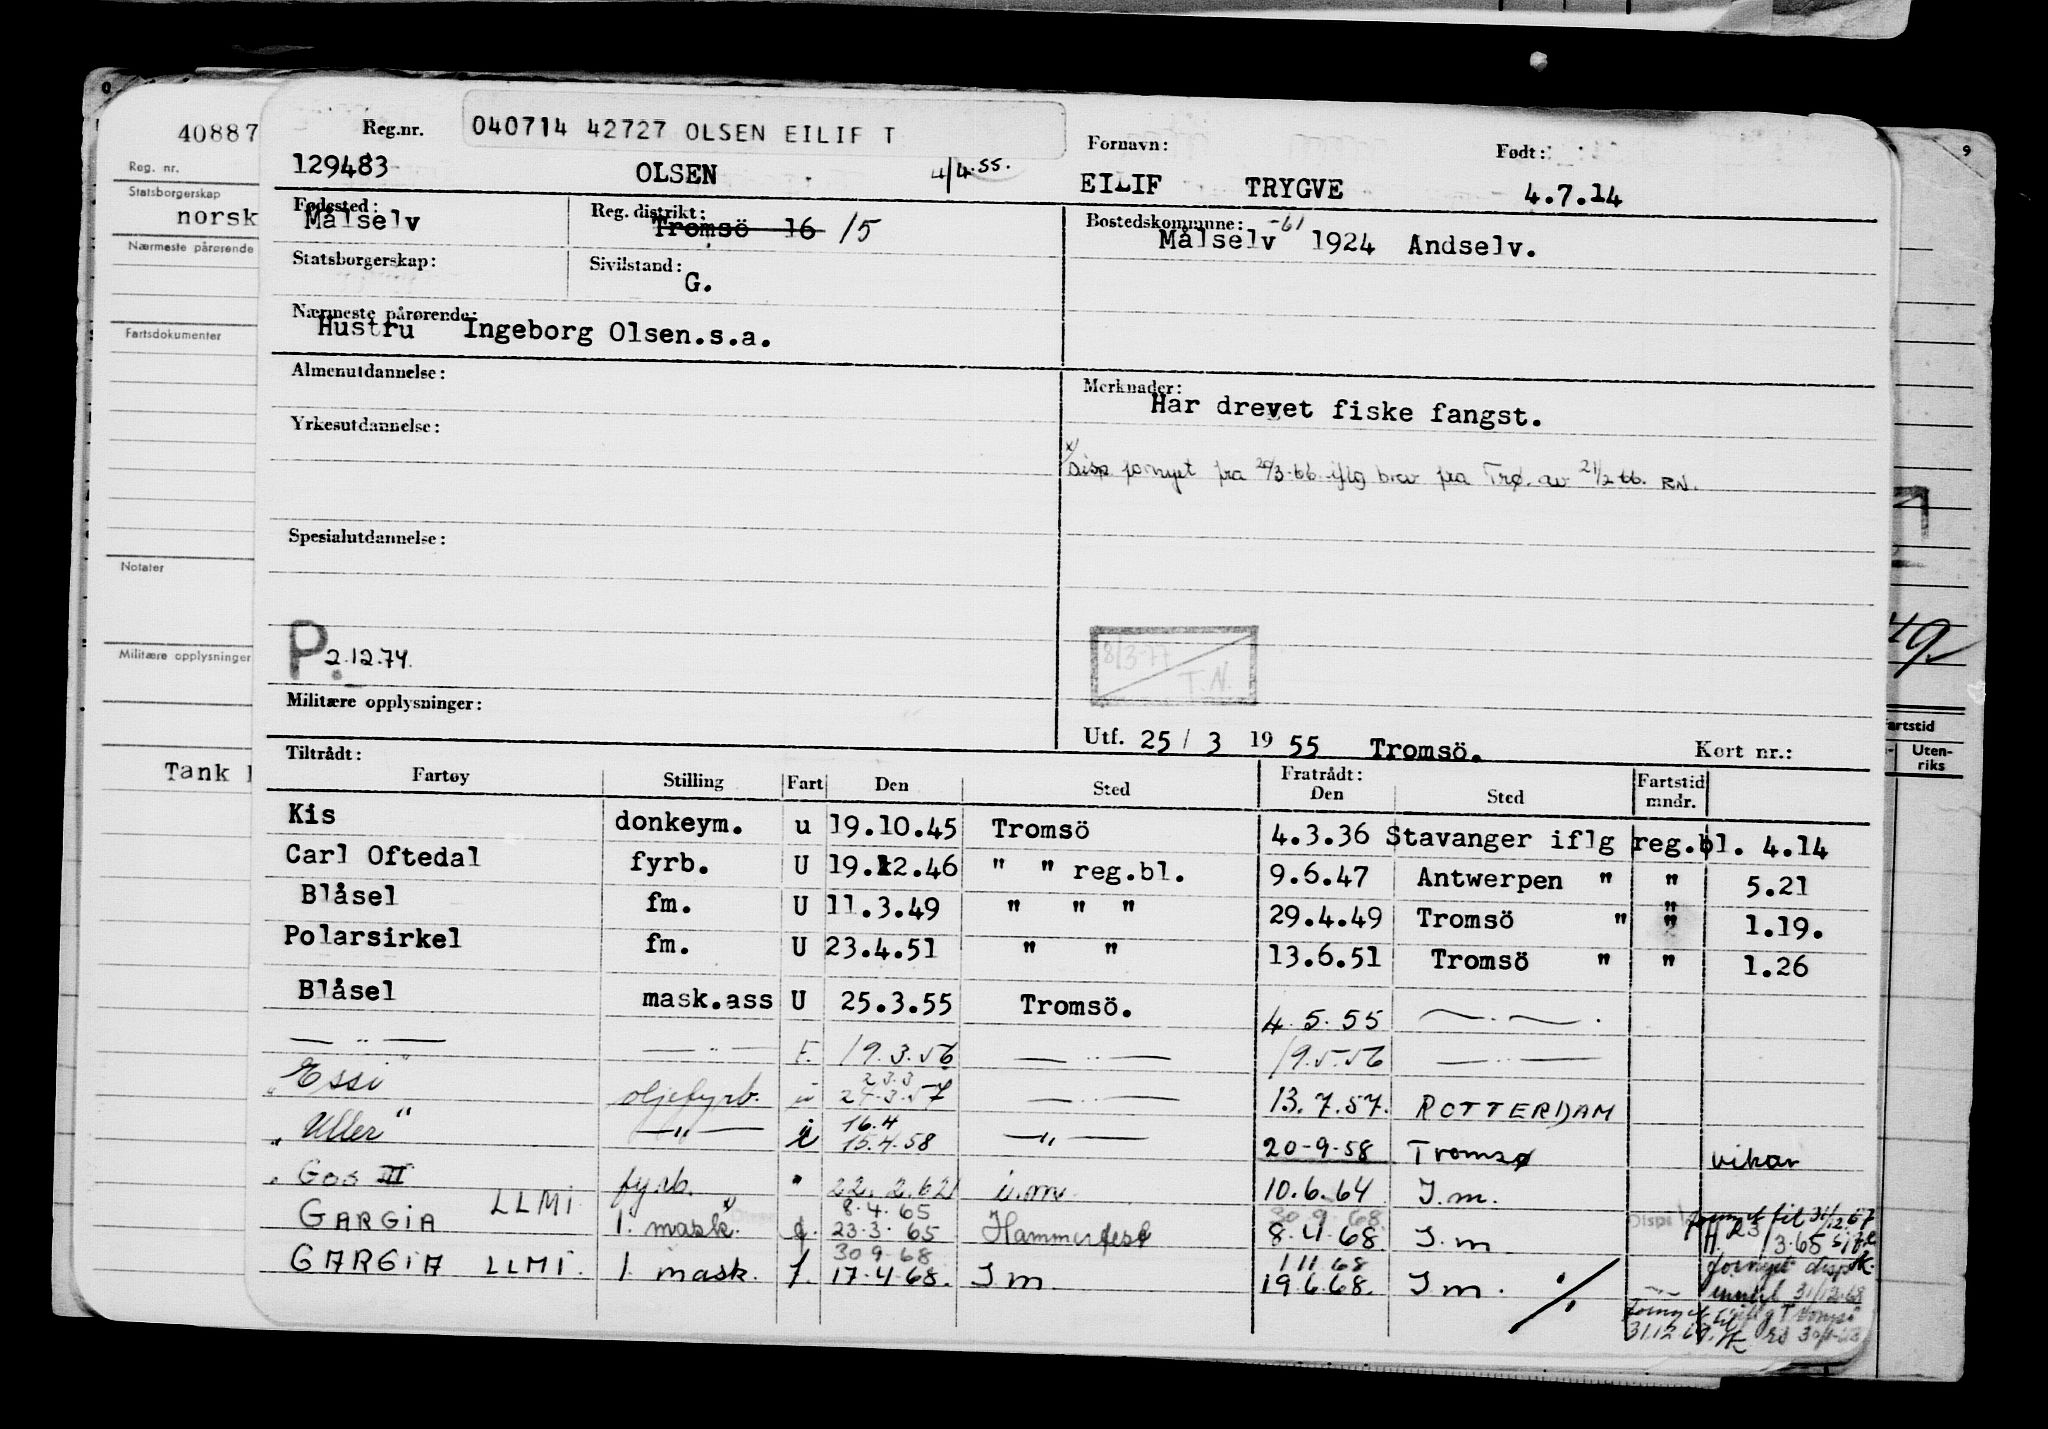 40887
Reg. nr.
Statsborgerskap
norsk
Nærmeste pårørende
Fartsdokumenter
Notater
Militære opplysninger
Tank
Reg.nr. 040714 42727 OLSEN EILIF T Fornavn: Født:
129483 OLSEN 4/4.55. EILIF TRYGVE 4.7.14
Fødested: Reg. distrikt: Bostedskommune:
Målselv Tromsö 16 15 Målselv -61 1924 Andselv.
Statsborgerskap: Sivilstand:
G.
Nærmeste pårørende:
Hustru Ingeborg Olsen.s.a.
Almenutdannelse: Merknader:
Har drevet fiske fangst.
Yrkesutdannelse:
x) Disp fornyet fra 20/3-66 iflg brev fra Trø. av 21/2 66. RN.
Spesialutdannelse:
P. 2.12.74.
8/3-77
T.N.
Militære opplysninger:
Utf. 25 / 3 1955 Tromsö. Kort nr.:
Tiltrådt: Fratrådt:
Fartøy Stilling Fart Den Sted Den Sted Fartstid mndr.
Kis donkeym. u 19.10.45 Tromsö 4.3.36 Stavanger iflg reg.bl. 4.14
Carl Oftedal fyrb. U 19.12.46 " " reg.bl. 9.6.47 Antwerpen " " 5.21
Blåsel fm. U 11.3.49 " " " 29.4.49 Tromsö " " 1.19.
Polarsirkel fm. U 23.4.51 " " 13.6.51 Tromsö " " 1.26
Blåsel mask.ass U 25.3.55 Tromsö. 4.5.55 — . — .
— " — — " — F. 19.3.56 — " — 19.5.56 — . —
"Essi" oljefyrb. u 23.3 24.3.57 — " — 13.7.57. ROTTERDAM
"Uller" — " — i 16.4 15.4.58 — " — 20-9-58 Tromsø vikar
" Gos III fyrb. " 22.2.62 i.m. 10.6.64 I.m.
GARGIA LLMI 1. mask. f. 8.4.65 23.3.65 Hammerfest 30.9.68. 8.4.68. I.m
GARGIA LLMI. 1. mask. f. 30 9-68 17.4.68. I m. 1 11 68 19.6.68. I m. ./.
fornyet disp
31/12-68
31.12.69.
artstid
Uten-
riks
49.
9